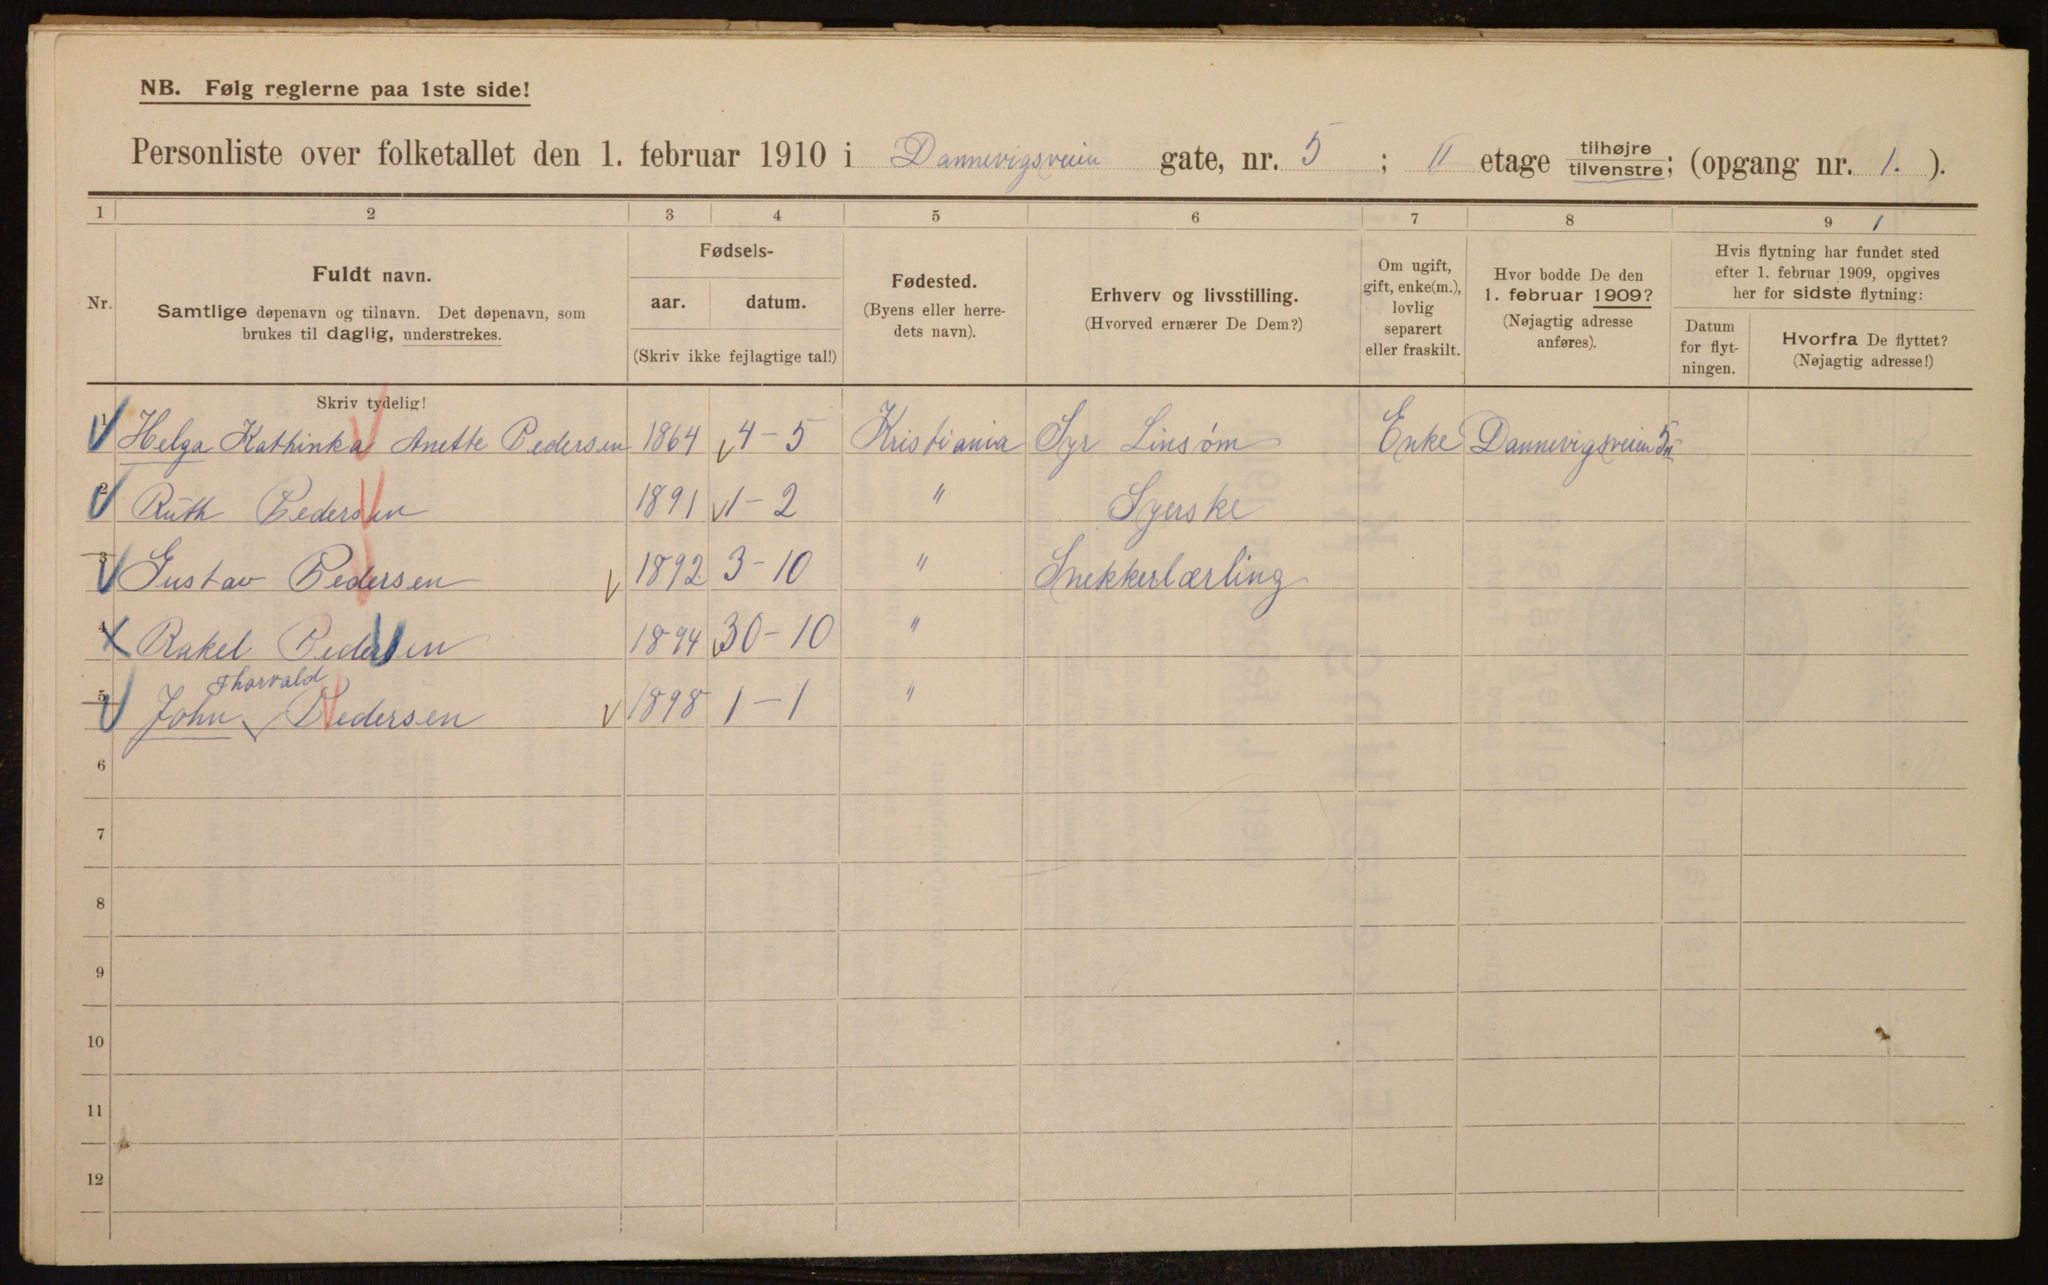 NB. Følg reglerne paa 1ste side!
Personliste over folketallet den 1. februar 1910 i Dannevigsveien gate, nr. 5 ; II etage tilhøjre tilvenstre; (opgang nr. 1. ).
1 2 3 4 5 6 7 8 9 1
Nr.
Fuldt navn.
Samtlige døpenavn og tilnavn. Det døpenavn, som
brukes til daglig, understrekes.
Skriv tydelig!
Fødsels-
aar. datum.
(Skriv ikke fejlagtige tal!)
Fødested.
(Byens eller herre-
dets navn).
Erhverv og livsstilling.
(Hvorved ernærer De Dem?)
Om ugift,
gift, enke(m.),
lovlig
separert
eller fraskilt.
Hvor bodde De den
1. februar 1909?
(Nøjagtig adresse
anføres).
Hvis flytning har fundet sted
efter 1. februar 1909, opgives
her for sidste flytning:
Datum
for flyt-
ningen.
Hvorfra De flyttet?
(Nøjagtig adresse!)
1 Helga Kathinka Anette Pedersen 1864 4-5 Kristiania Syr Linsøm Enke Dannevigsveien
2 Ruth Pedersen 1891 1-2 " Syerske
3 Gustav Pedersen 1892 3-10 " Snekkerlærling
4 Rakel Pedersen 1894 30-10 "
Thorvald
5 John Pedersen 1898 1-1 "
6
7
8
9
10
11
12